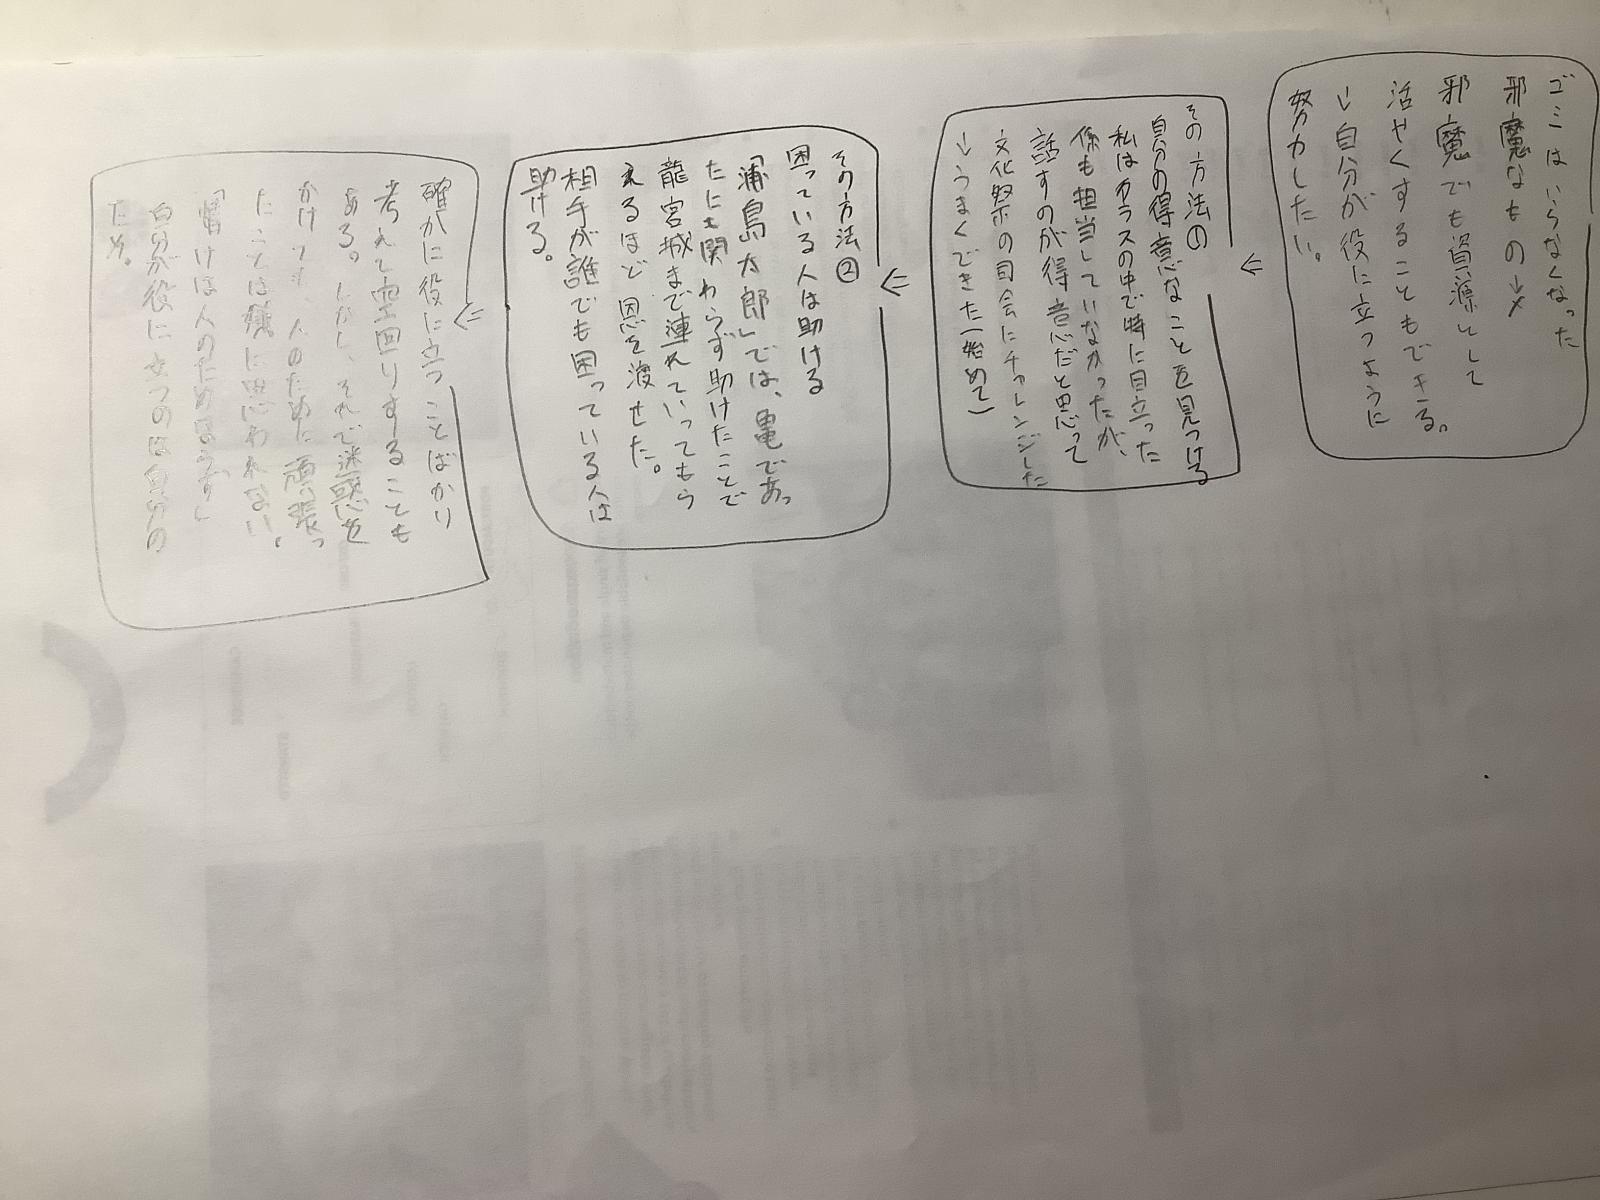 ゴミはいらなくなった
邪魔なもの→×
邪魔でも資源として
活やくすることもできる。
→自分が役に立つように
努力したい。
その方法①
自分の得意なことを見つける
私はクラスの中で特に目立った
係も担当していなかったが、
話すのが得意だと思って
文化祭の司会にチャレンジした
→うまくできた(始めて)
その方法②
困っている人は助ける
「浦島太郎」では、亀であっ
たにも関わらず助けたことで
龍宮城まで連れていってもら
えるほど恩を渡せた。
相手が誰でも困っている人は
助ける。
確かに役に立つことばかり
考えて空回りすることも
ある。しかし、それで迷惑を
かけても、人のために頑張っ
たことは嫌に思われない。
「情けは人のためならず」
自分が役に立つのは自分の
ため。